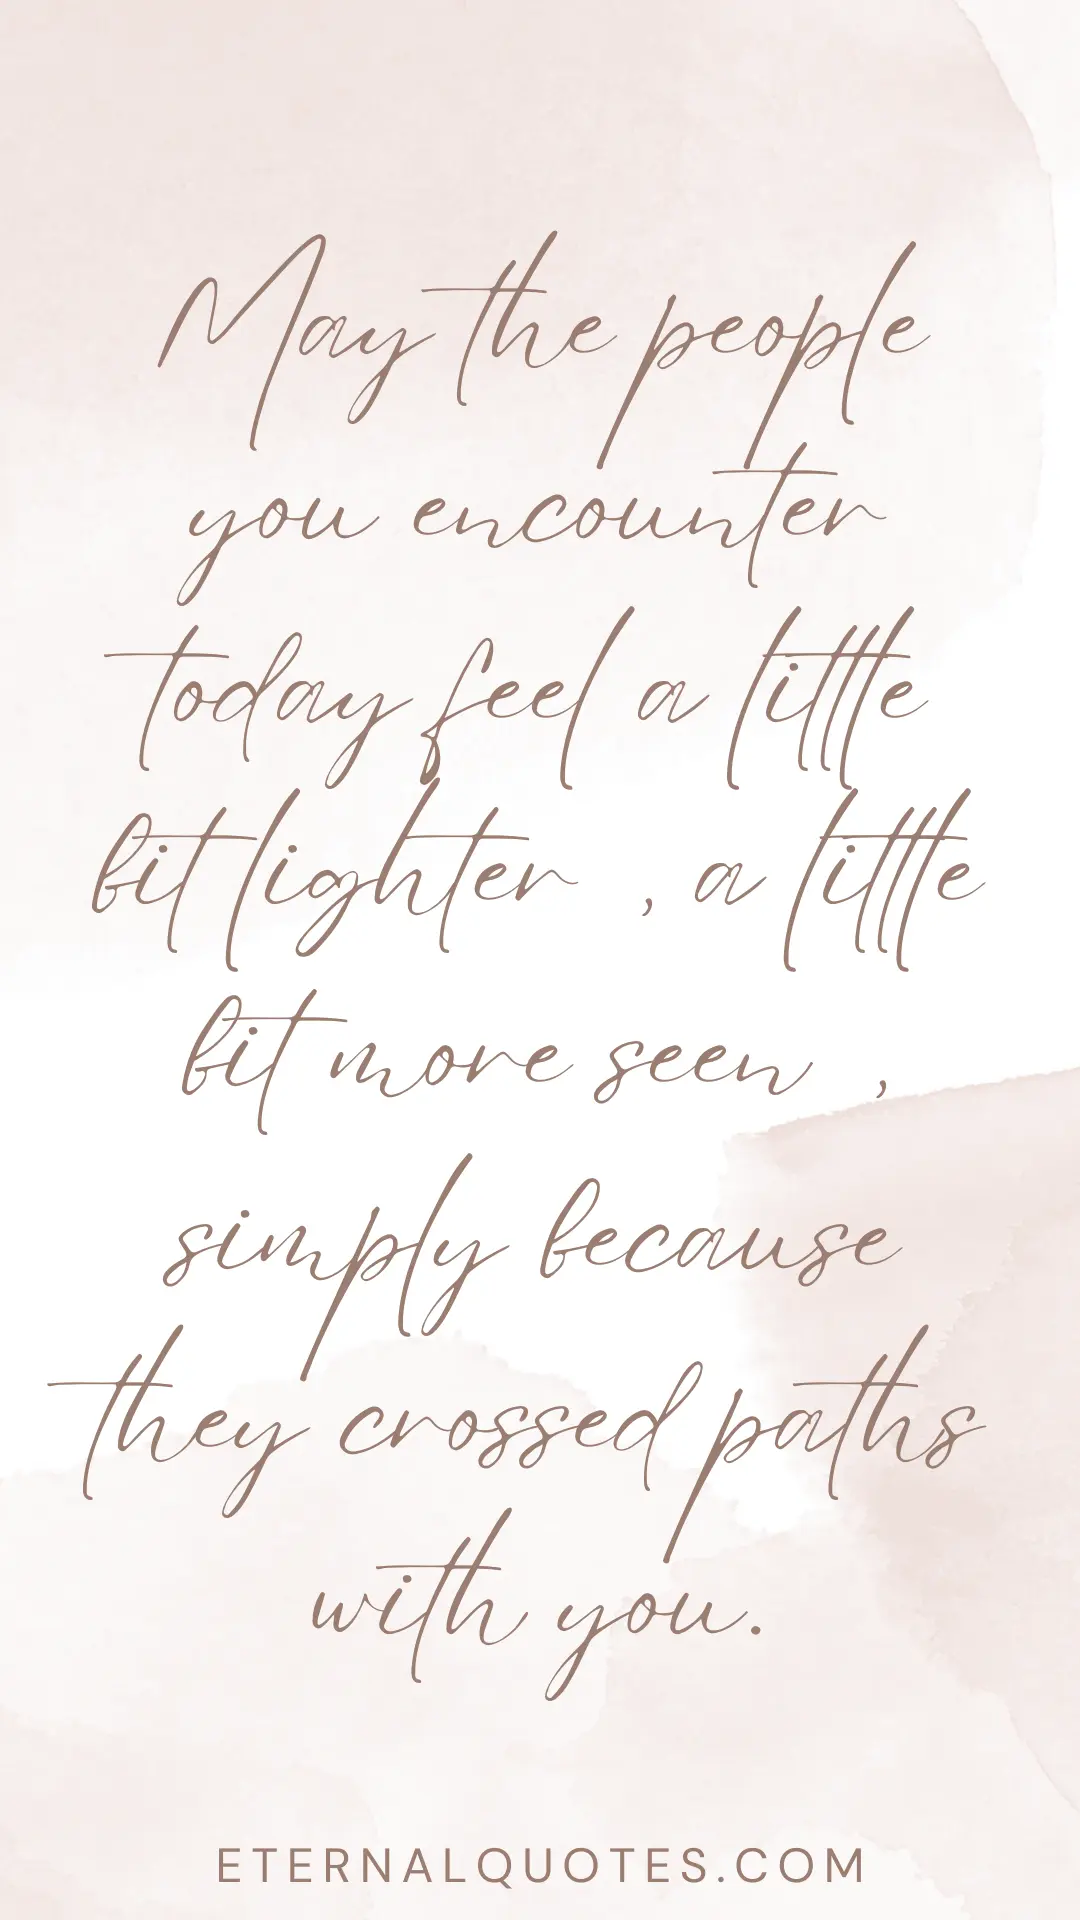 May the people
you encounter
today feel a little
bit lighter , a little
bit more seen ,
simply because
they crossed paths
with you.
ETERNALQUOTES.COM